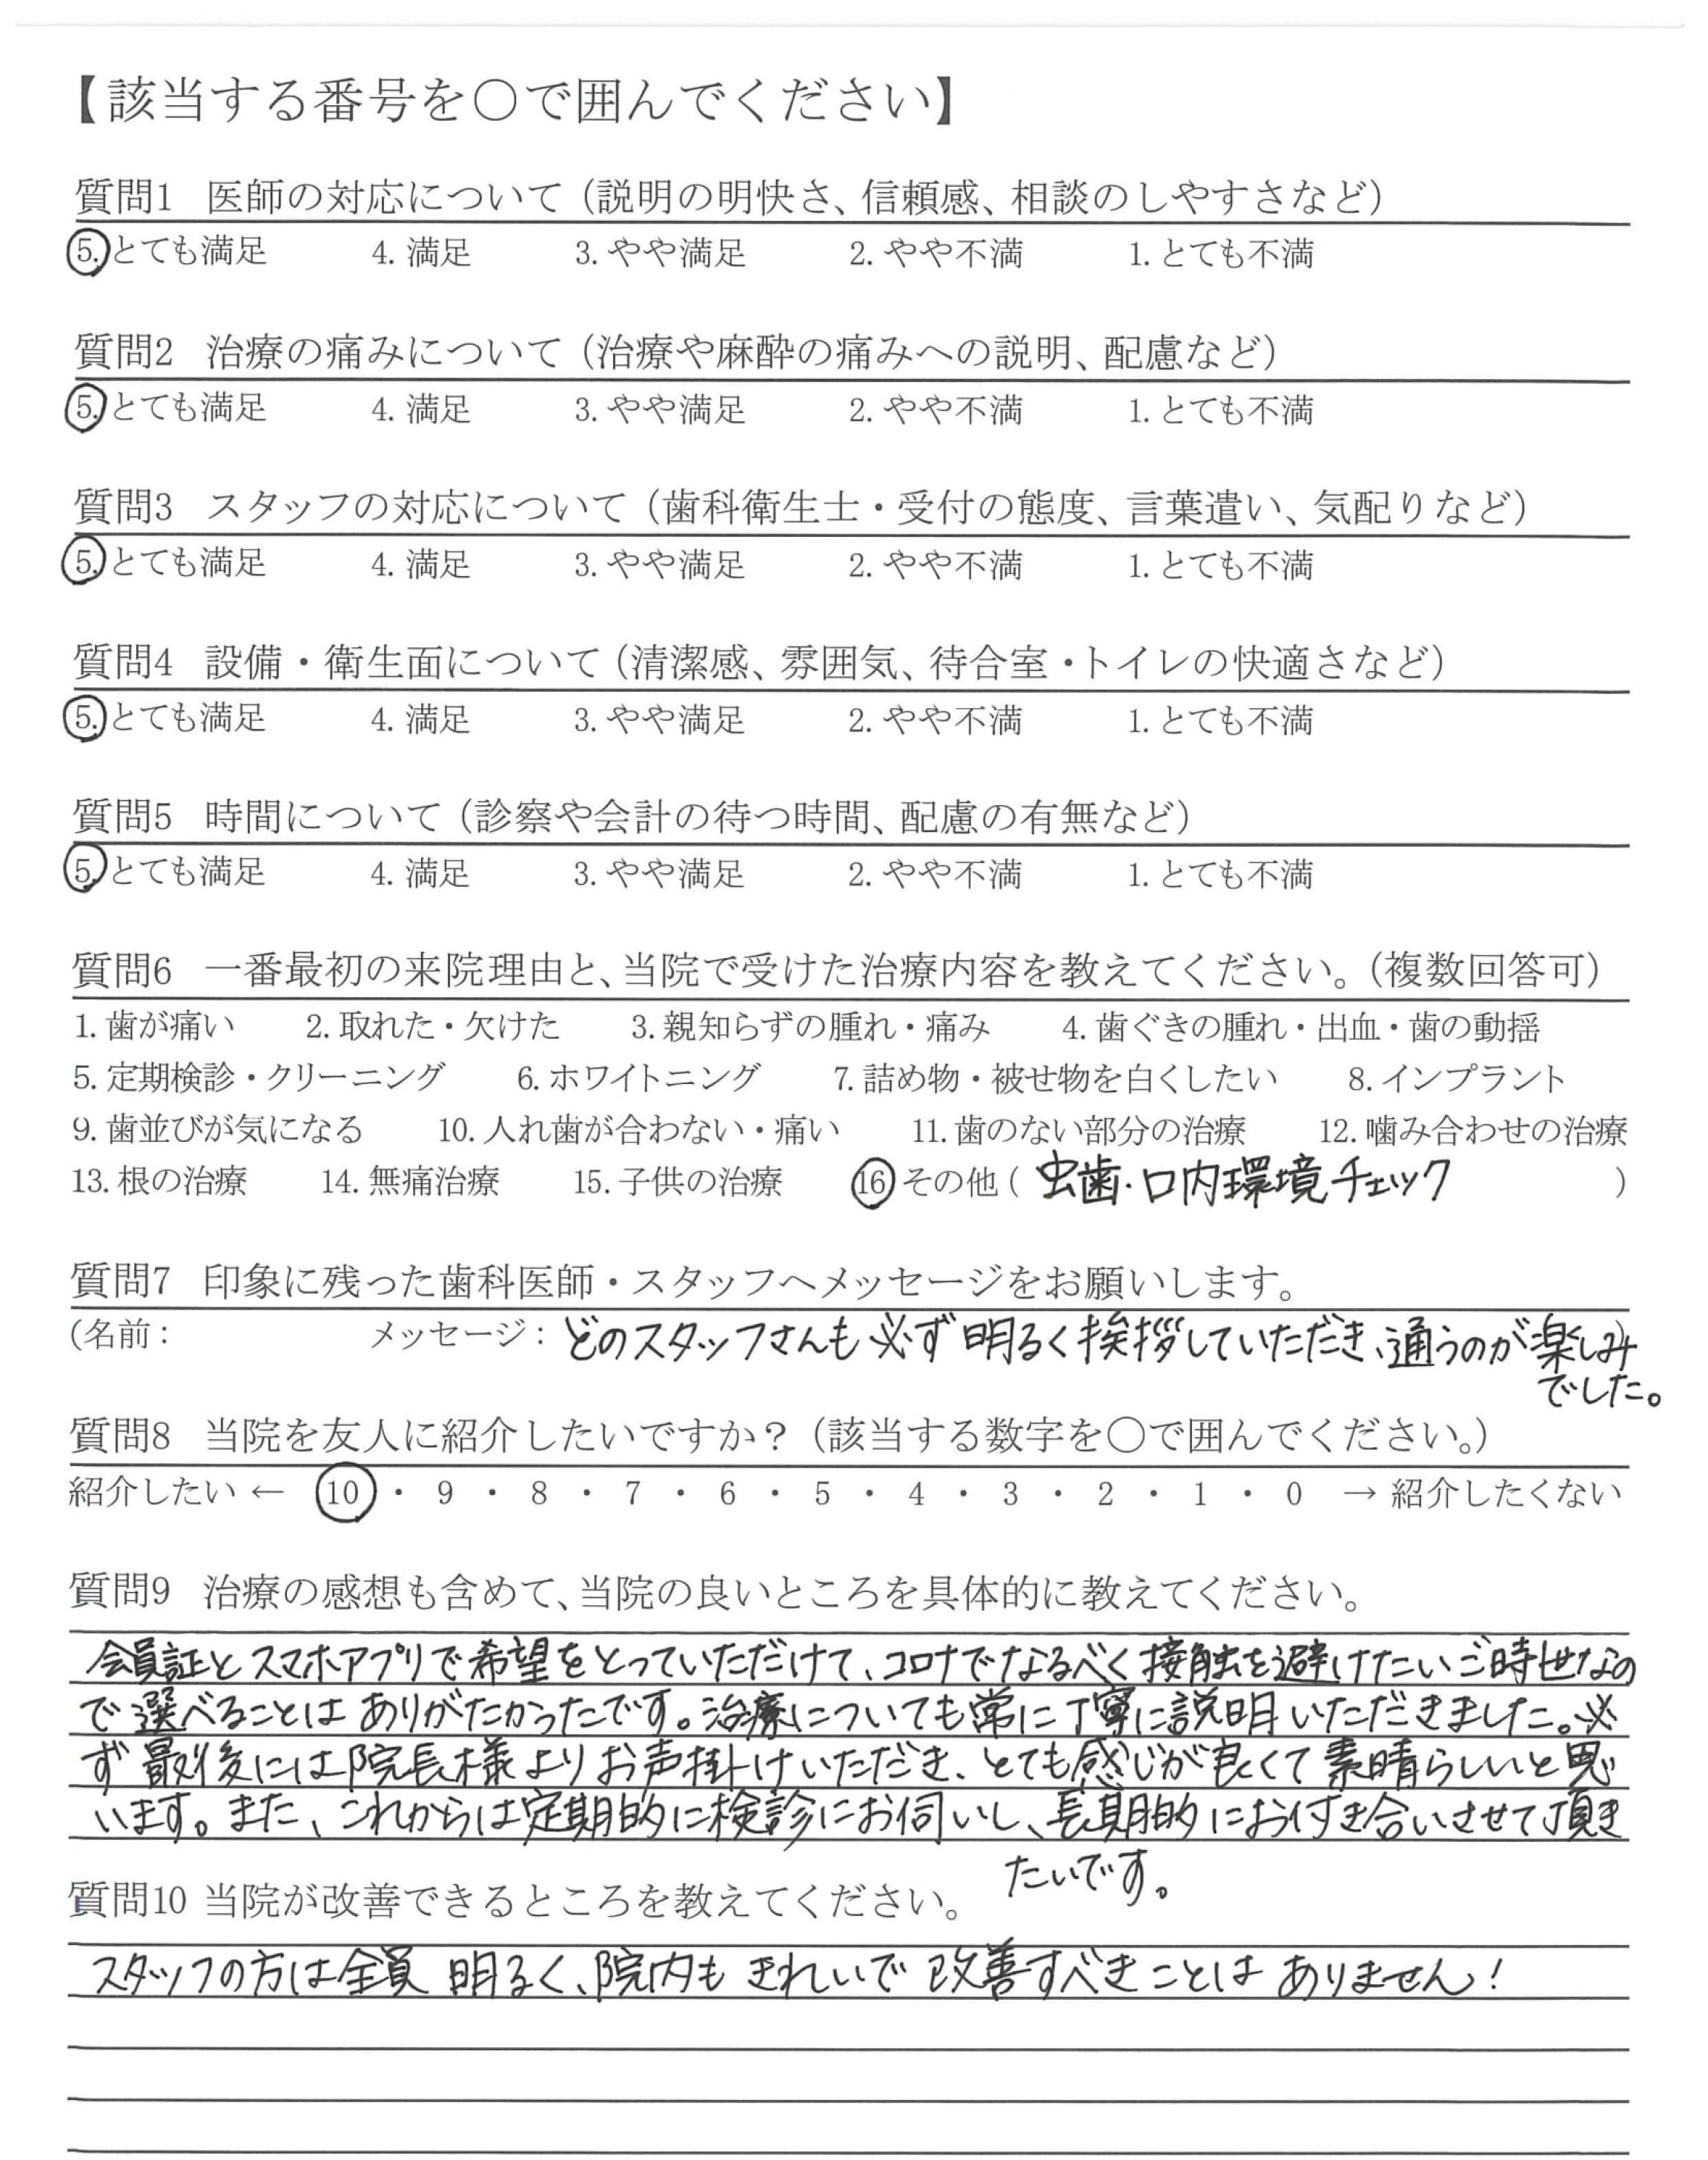 【該当する番号を○で囲んでください】
質問1 医師の対応について（説明の明快さ、信頼感、相談のしやすさなど）
5. とても満足 4. 満足 3. やや満足 2. やや不満 1. とても不満
質問2 治療の痛みについて（治療や麻酔の痛みへの説明、配慮など）
5. とても満足 4. 満足 3. やや満足 2. やや不満 1. とても不満
質問3 スタッフの対応について（歯科衛生士・受付の態度、言葉遣い、気配りなど）
5. とても満足 4. 満足 3. やや満足 2. やや不満 1. とても不満
質問4 設備・衛生面について（清潔感、雰囲気、待合室・トイレの快適さなど）
5. とても満足 4. 満足 3. やや満足 2. やや不満 1. とても不満
質問5 時間について（診察や会計の待つ時間、配慮の有無など）
5. とても満足 4. 満足 3. やや満足 2. やや不満 1. とても不満
質問6 一番最初の来院理由と、当院で受けた治療内容を教えてください。（複数回答可）
1. 歯が痛い 2. 取れた・欠けた 3. 親知らずの腫れ・痛み 4. 歯ぐきの腫れ・出血・歯の動揺
5. 定期検診・クリーニング 6. ホワイトニング 7. 詰め物・被せ物を白くしたい 8. インプラント
9. 歯並びが気になる 10. 人れ歯が合わない・痛い 11. 歯のない部分の治療 12. 噛み合わせの治療
13. 根の治療 14. 無痛治療 15. 子供の治療 16 その他（ 虫歯・口内環境チェック ）
質問7 印象に残った歯科医師・スタッフへメッセージをお願いします。
（名前： メッセージ： どのスタッフさんも必ず明るく挨拶していただき、通うのが楽しみ
でした。
質問8 当院を友人に紹介したいですか？（該当する数字を○で囲んでください。）
紹介したい ← 10 ・ 9 ・ 8 ・ 7 ・ 6 ・ 5 ・ 4 ・ 3 ・ 2 ・ 1 ・ 0 → 紹介したくない
質問9 治療の感想も含めて、当院の良いところを具体的に教えてください。
会員証とスマホアプリで希望をとっていただけて、コロナでなるべく接触を避けたいご時世なの
で選べることはありがたかったです。治療についても常に丁寧に説明いただきました。必
ず最後には院長様よりお声掛けいただき、とても感じが良くて素晴らしいと思
います。また、これからは定期的に検診にお伺いし、長期的にお付き合いさせて頂き
たいです。
質問10 当院が改善できるところを教えてください。
スタッフの方は全員 明るく、院内も きれいで 改善すべきことは ありません！